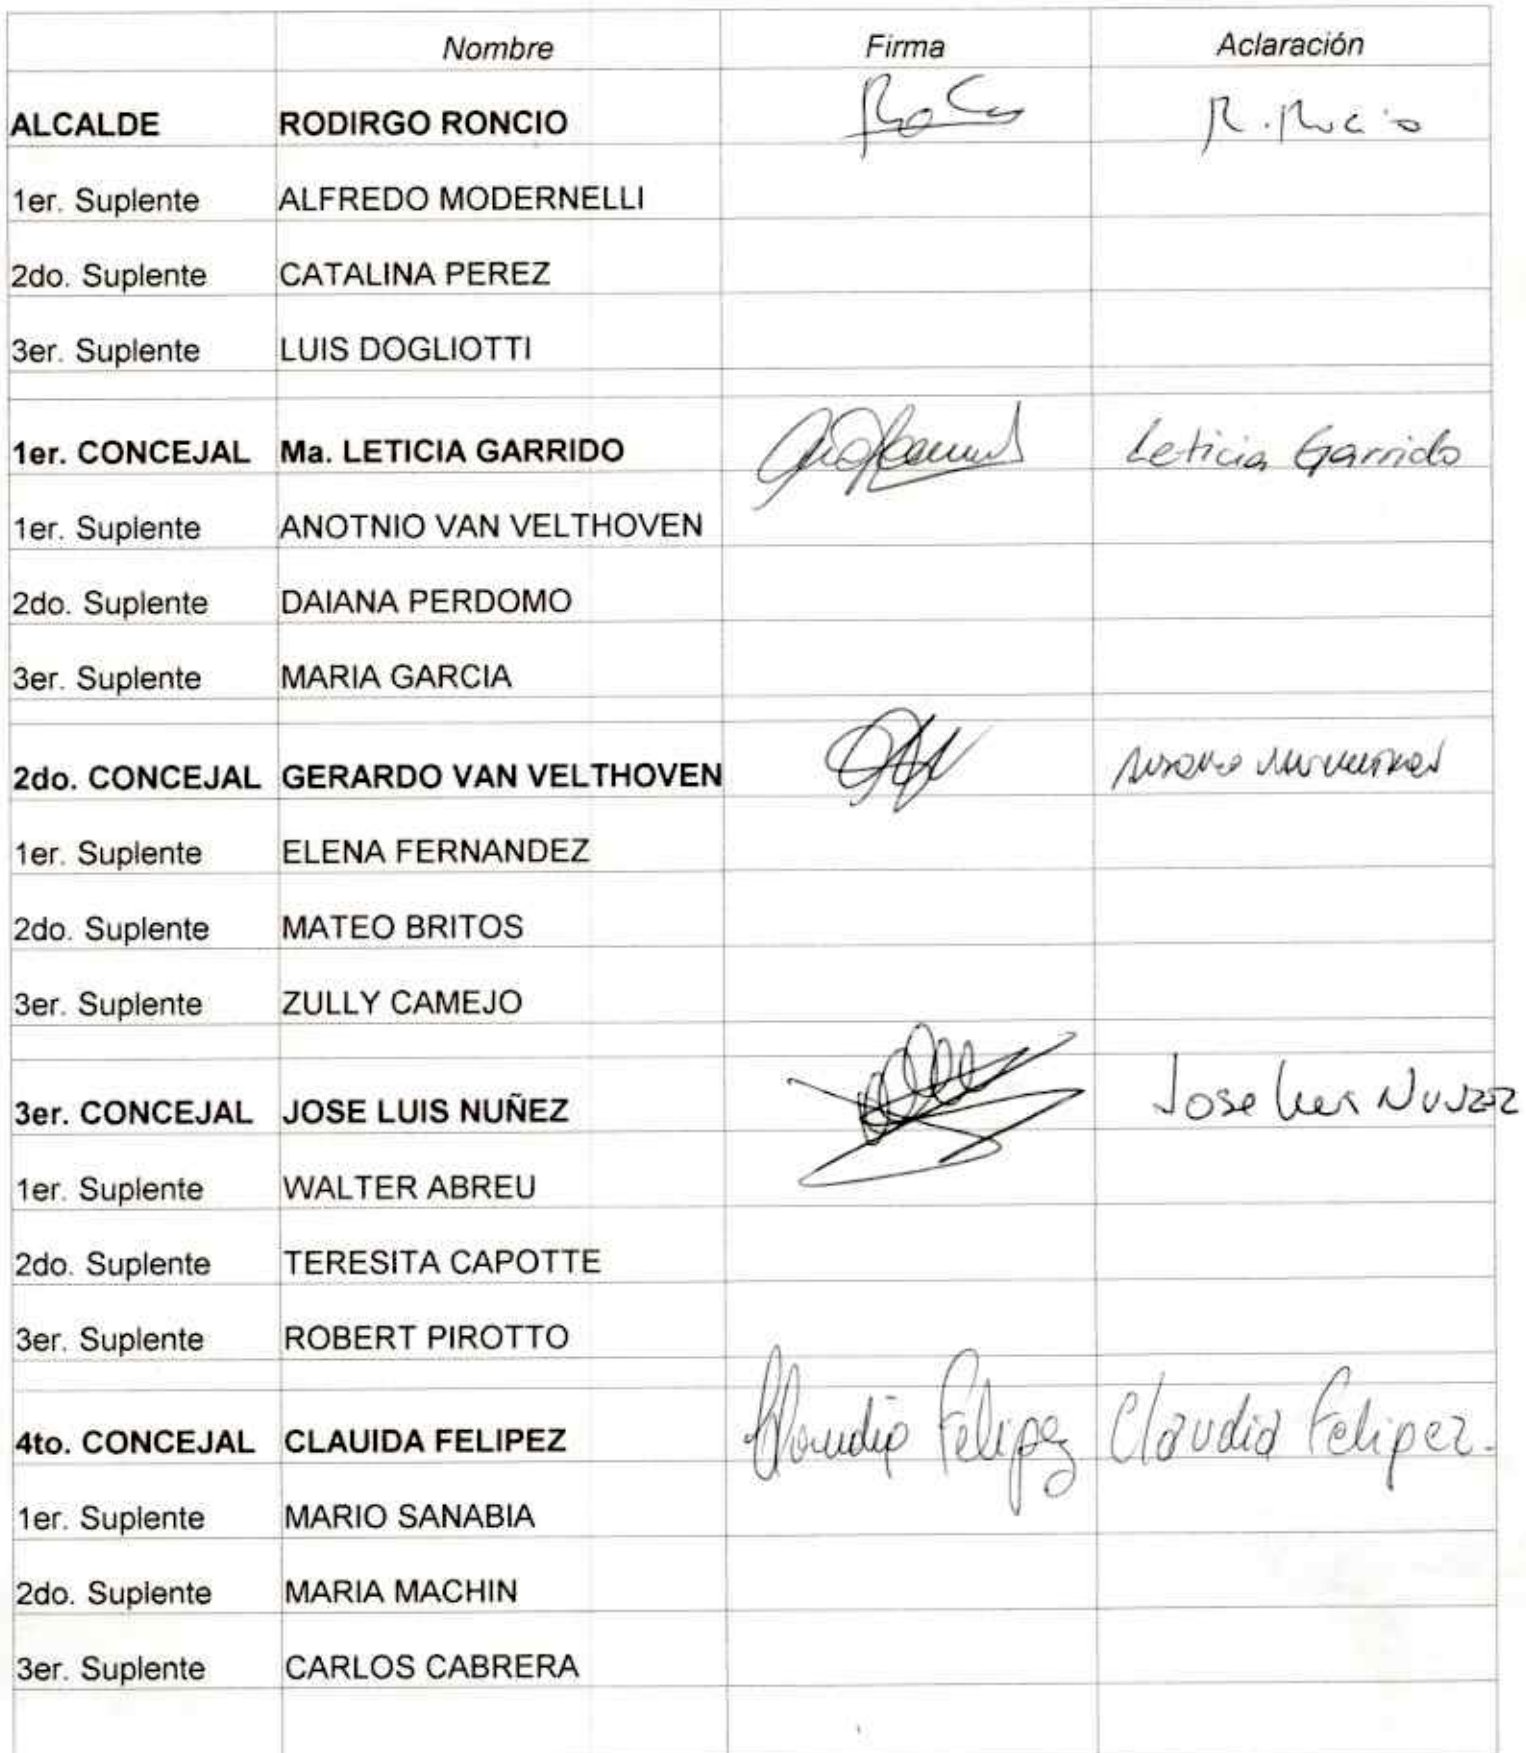 Nombre Firma Aclaración
ALCALDE RODIRGO RONCIO R. Roncio
1er. Suplente ALFREDO MODERNELLI
2do. Suplente CATALINA PEREZ
3er. Suplente LUIS DOGLIOTTI
1er. CONCEJAL Ma. LETICIA GARRIDO Leticia Garrido
1er. Suplente ANOTNIO VAN VELTHOVEN
2do. Suplente DAIANA PERDOMO
3er. Suplente MARIA GARCIA
2do. CONCEJAL GERARDO VAN VELTHOVEN
1er. Suplente ELENA FERNANDEZ
2do. Suplente MATEO BRITOS
3er. Suplente ZULLY CAMEJO
3er. CONCEJAL JOSE LUIS NUÑEZ Jose Luis Nuñez
1er. Suplente WALTER ABREU
2do. Suplente TERESITA CAPOTTE
3er. Suplente ROBERT PIROTTO
4to. CONCEJAL CLAUIDA FELIPEZ Claudia Felipez Claudia Felipez.
1er. Suplente MARIO SANABIA
2do. Suplente MARIA MACHIN
3er. Suplente CARLOS CABRERA